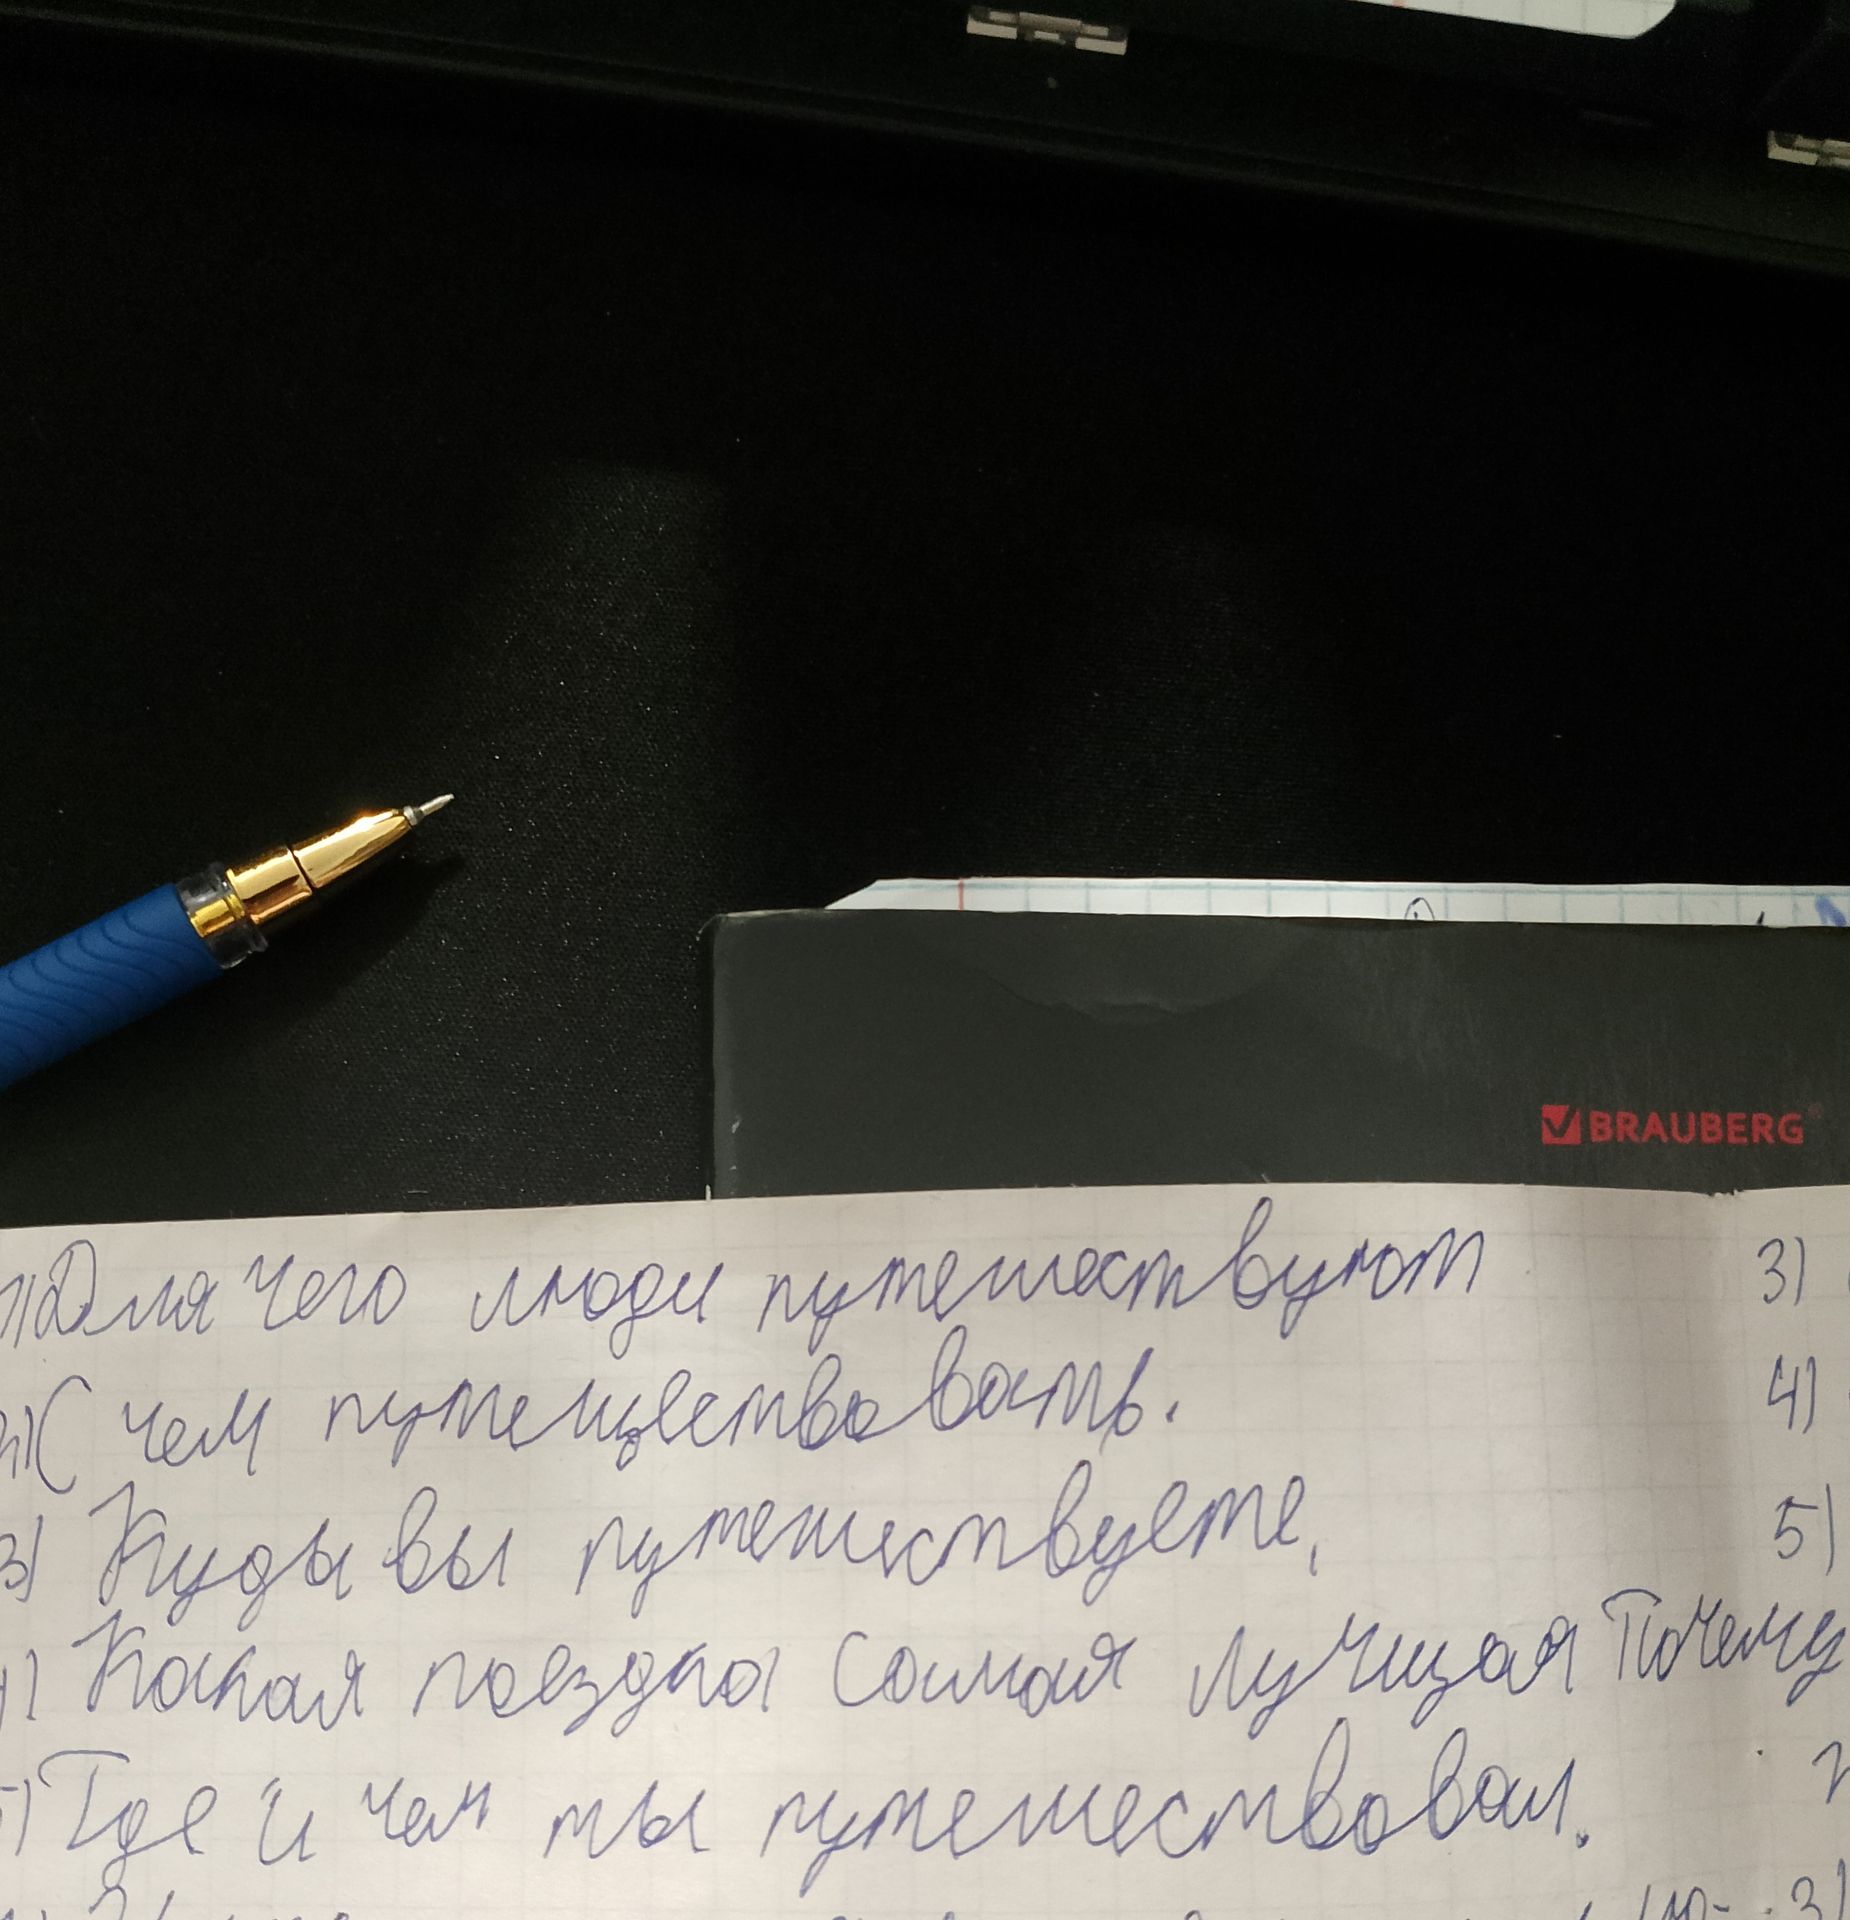 BRAUBERG
1) Для чего люди путешествуют
2) С чем путеществовать.
3) Куда вы путешествуете.
4) Какая поездка самая лучщая Почему
5) Где и чем ты путешествовал.
3)
4)
5)
3)